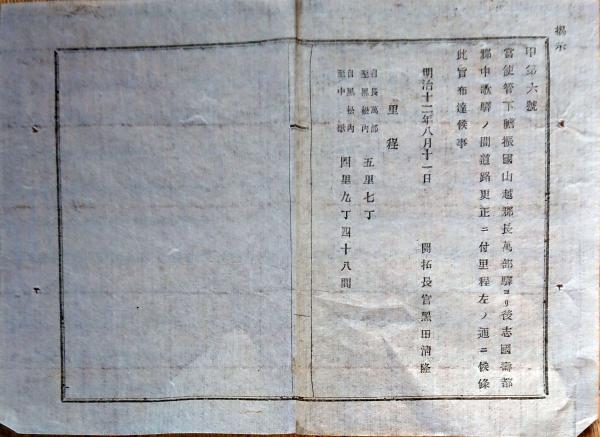 掲示
甲第六號
當使管下膽振國山越郡長萬部驛ヨリ後志國壽都
郡中歌驛ノ間道路更正ニ付里程左ノ通ニ候條
此旨布達候事
明治十二年八月十一日 開拓長官黑田清隆
里程
自長萬部
至黑松內 五里七丁
自黑松內
至中歌 四里九丁四十八間